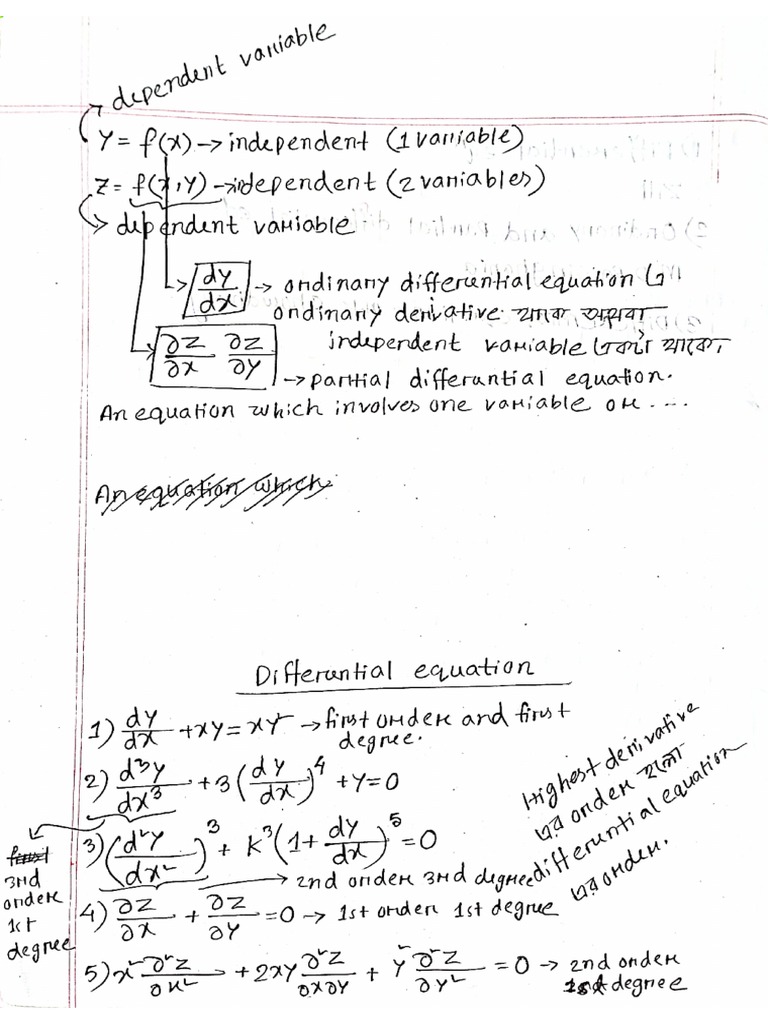 dependent variable
Y = f(x) → independent (1 variable)
Z = f(x,y) → independent (2 variables)
dependent variable
dy/dx → ordinary differential equation এ
ordinary derivative থাকে অথবা
independent variable একটা থাকে।
∂z/∂x ∂z/∂y
→ partial differential equation.
An equation which involves one variable or ....
An equation which
Differential equation
1) dy/dx + xy = xy² → first order and first
degree.
2) d³y/dx³ + 3(dy/dx)⁴ + y = 0
3rd
order
1st
degree
3) (d²y/dx²)³ + K³(1 + dy/dx)⁵ = 0
→ 2nd order 3rd degree
4) ∂z/∂x + ∂z/∂y = 0 → 1st order 1st degree
5) x² ∂²z/∂x² + 2xy ∂²z/∂x∂y + y² ∂²z/∂y² = 0 → 2nd order
1st degree
Highest derivative
এর order হলো
differential equation
এর order.